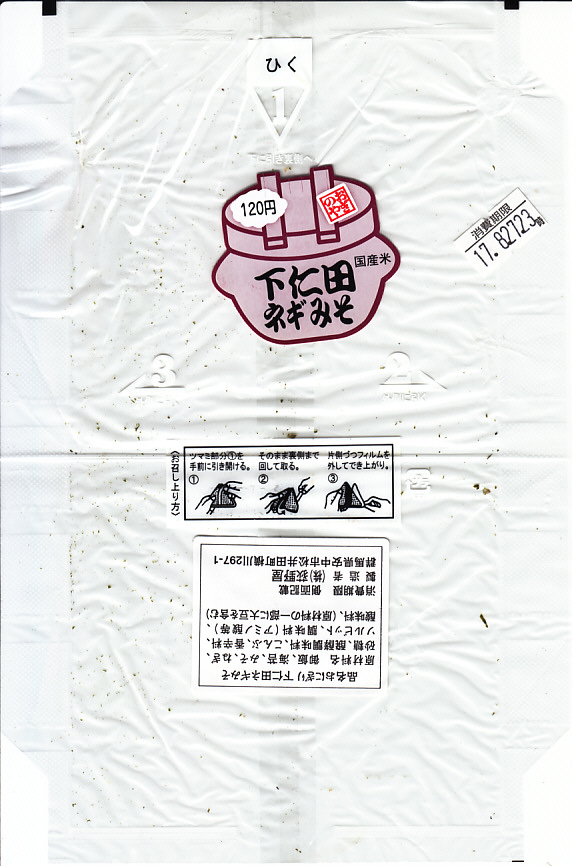 ひく
1
下に引き裏側へ
120円
おぎのや
国産米
下仁田
ネギみそ
消費期限
17. 82723時
3
2
〈お召し上り方〉
ツマミ部分①を
手前に引き開ける。
①
そのまま裏側まで
回して取る。
②
片側づつフィルムを
外してでき上がり。
③
品名おにぎり 下仁田ネギみそ
原材料名 御飯、海苔、みそ、ねぎ、
砂糖、醗酵調味料、こんぶ、香辛料、
ソルビット、調味料(アミノ酸等)、
酸味料、(原材料の一部に大豆を含む)
消費期限 側面記載
製造者 (株)荻野屋
群馬県安中市松井田町横川297-1